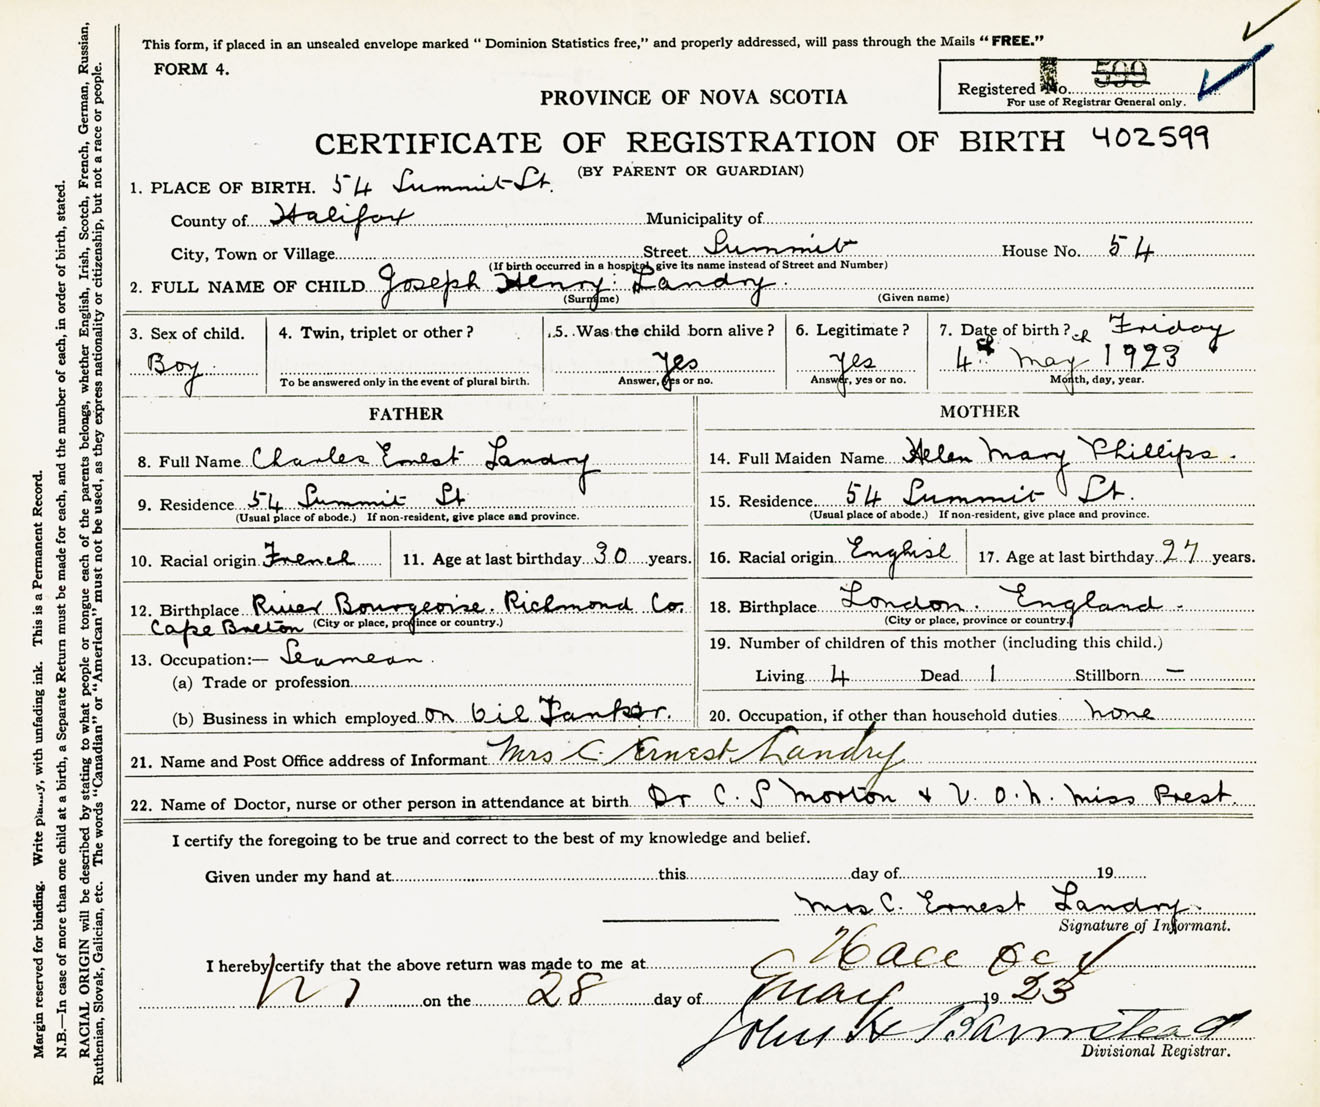 This form, if placed in an unsealed envelope marked " Dominion Statistics free," and properly addressed, will pass through the Mails "FREE."
FORM 4.
Registered No. 599
For use of Registrar General only.
PROVINCE OF NOVA SCOTIA
CERTIFICATE OF REGISTRATION OF BIRTH 402599
(BY PARENT OR GUARDIAN)
1. PLACE OF BIRTH. 54 Summit St.
County of Halifax Municipality of
City, Town or Village Street Summit House No. 54
(If birth occurred in a hospital, give its name instead of Street and Number)
2. FULL NAME OF CHILD Joseph Henry Landry.
(Surname) (Given name)
3. Sex of child. 4. Twin, triplet or other? 5. Was the child born alive? 6. Legitimate? 7. Date of birth? Friday
Boy. Yes Yes 4th May 1923
To be answered only in the event of plural birth. Answer, yes or no. Answer, yes or no. Month, day, year.
FATHER
8. Full Name Charles Ernest Landry
9. Residence 54 Summit St
(Usual place of abode.) If non-resident, give place and province.
10. Racial origin French 11. Age at last birthday 30 years.
12. Birthplace River Bourgeoise. Richmond Co.
Cape Breton (City or place, province or country.)
13. Occupation:— Seamean.
(a) Trade or profession
(b) Business in which employed on Oil Tanker.
MOTHER
14. Full Maiden Name Helen Mary Phillips.
15. Residence 54 Summit St.
(Usual place of abode.) If non-resident, give place and province.
16. Racial origin English 17. Age at last birthday 27 years.
18. Birthplace London. England -
(City or place, province or country.)
19. Number of children of this mother (including this child.)
Living 4 Dead 1 Stillborn —
20. Occupation, if other than household duties none
21. Name and Post Office address of Informant Mrs C Ernest Landry
22. Name of Doctor, nurse or other person in attendance at birth Dr C. S Morton + V. O. N. Miss Prest.
I certify the foregoing to be true and correct to the best of my knowledge and belief.
Given under my hand at this day of 19
Mrs C. Ernest Landry.
Signature of Informant.
I hereby certify that the above return was made to me at
on the 28 day of May 19 23
John H Barnstead
Divisional Registrar.
Margin reserved for binding. Write plainly, with unfading ink. This is a Permanent Record.
N.B.—In case of more than one child at a birth, a Separate Return must be made for each, and the number of each, in order of birth, stated.
RACIAL ORIGIN will be described by stating to what people or tongue each of the parents belongs, whether English, Irish, Scotch, French, German, Russian,
Ruthenian, Slovak, Galician, etc. The words "Canadian" or "American" must not be used, as they express nationality or citizenship, but not a race or people.